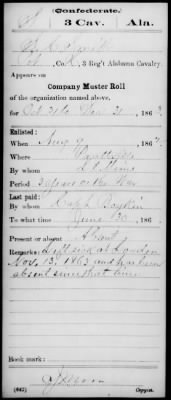 Confederate.
3 Cav. Ala.
Co. , 3 Reg't Alabama Cavalry.
Appears on
Company Muster Roll
of the organization named above,
for Oct 31 to Dec 31, 1863.
Enlisted:
When Aug 9, 186
Where
By whom
Period 3 years or the War
Last paid:
By whom Capt
To what time June 30, 186
Present or absent Absent
Remarks: Left sick at Loudon
Nov. 13, 1863 and has been
absent since that time
Book mark:
(642) Copyist.